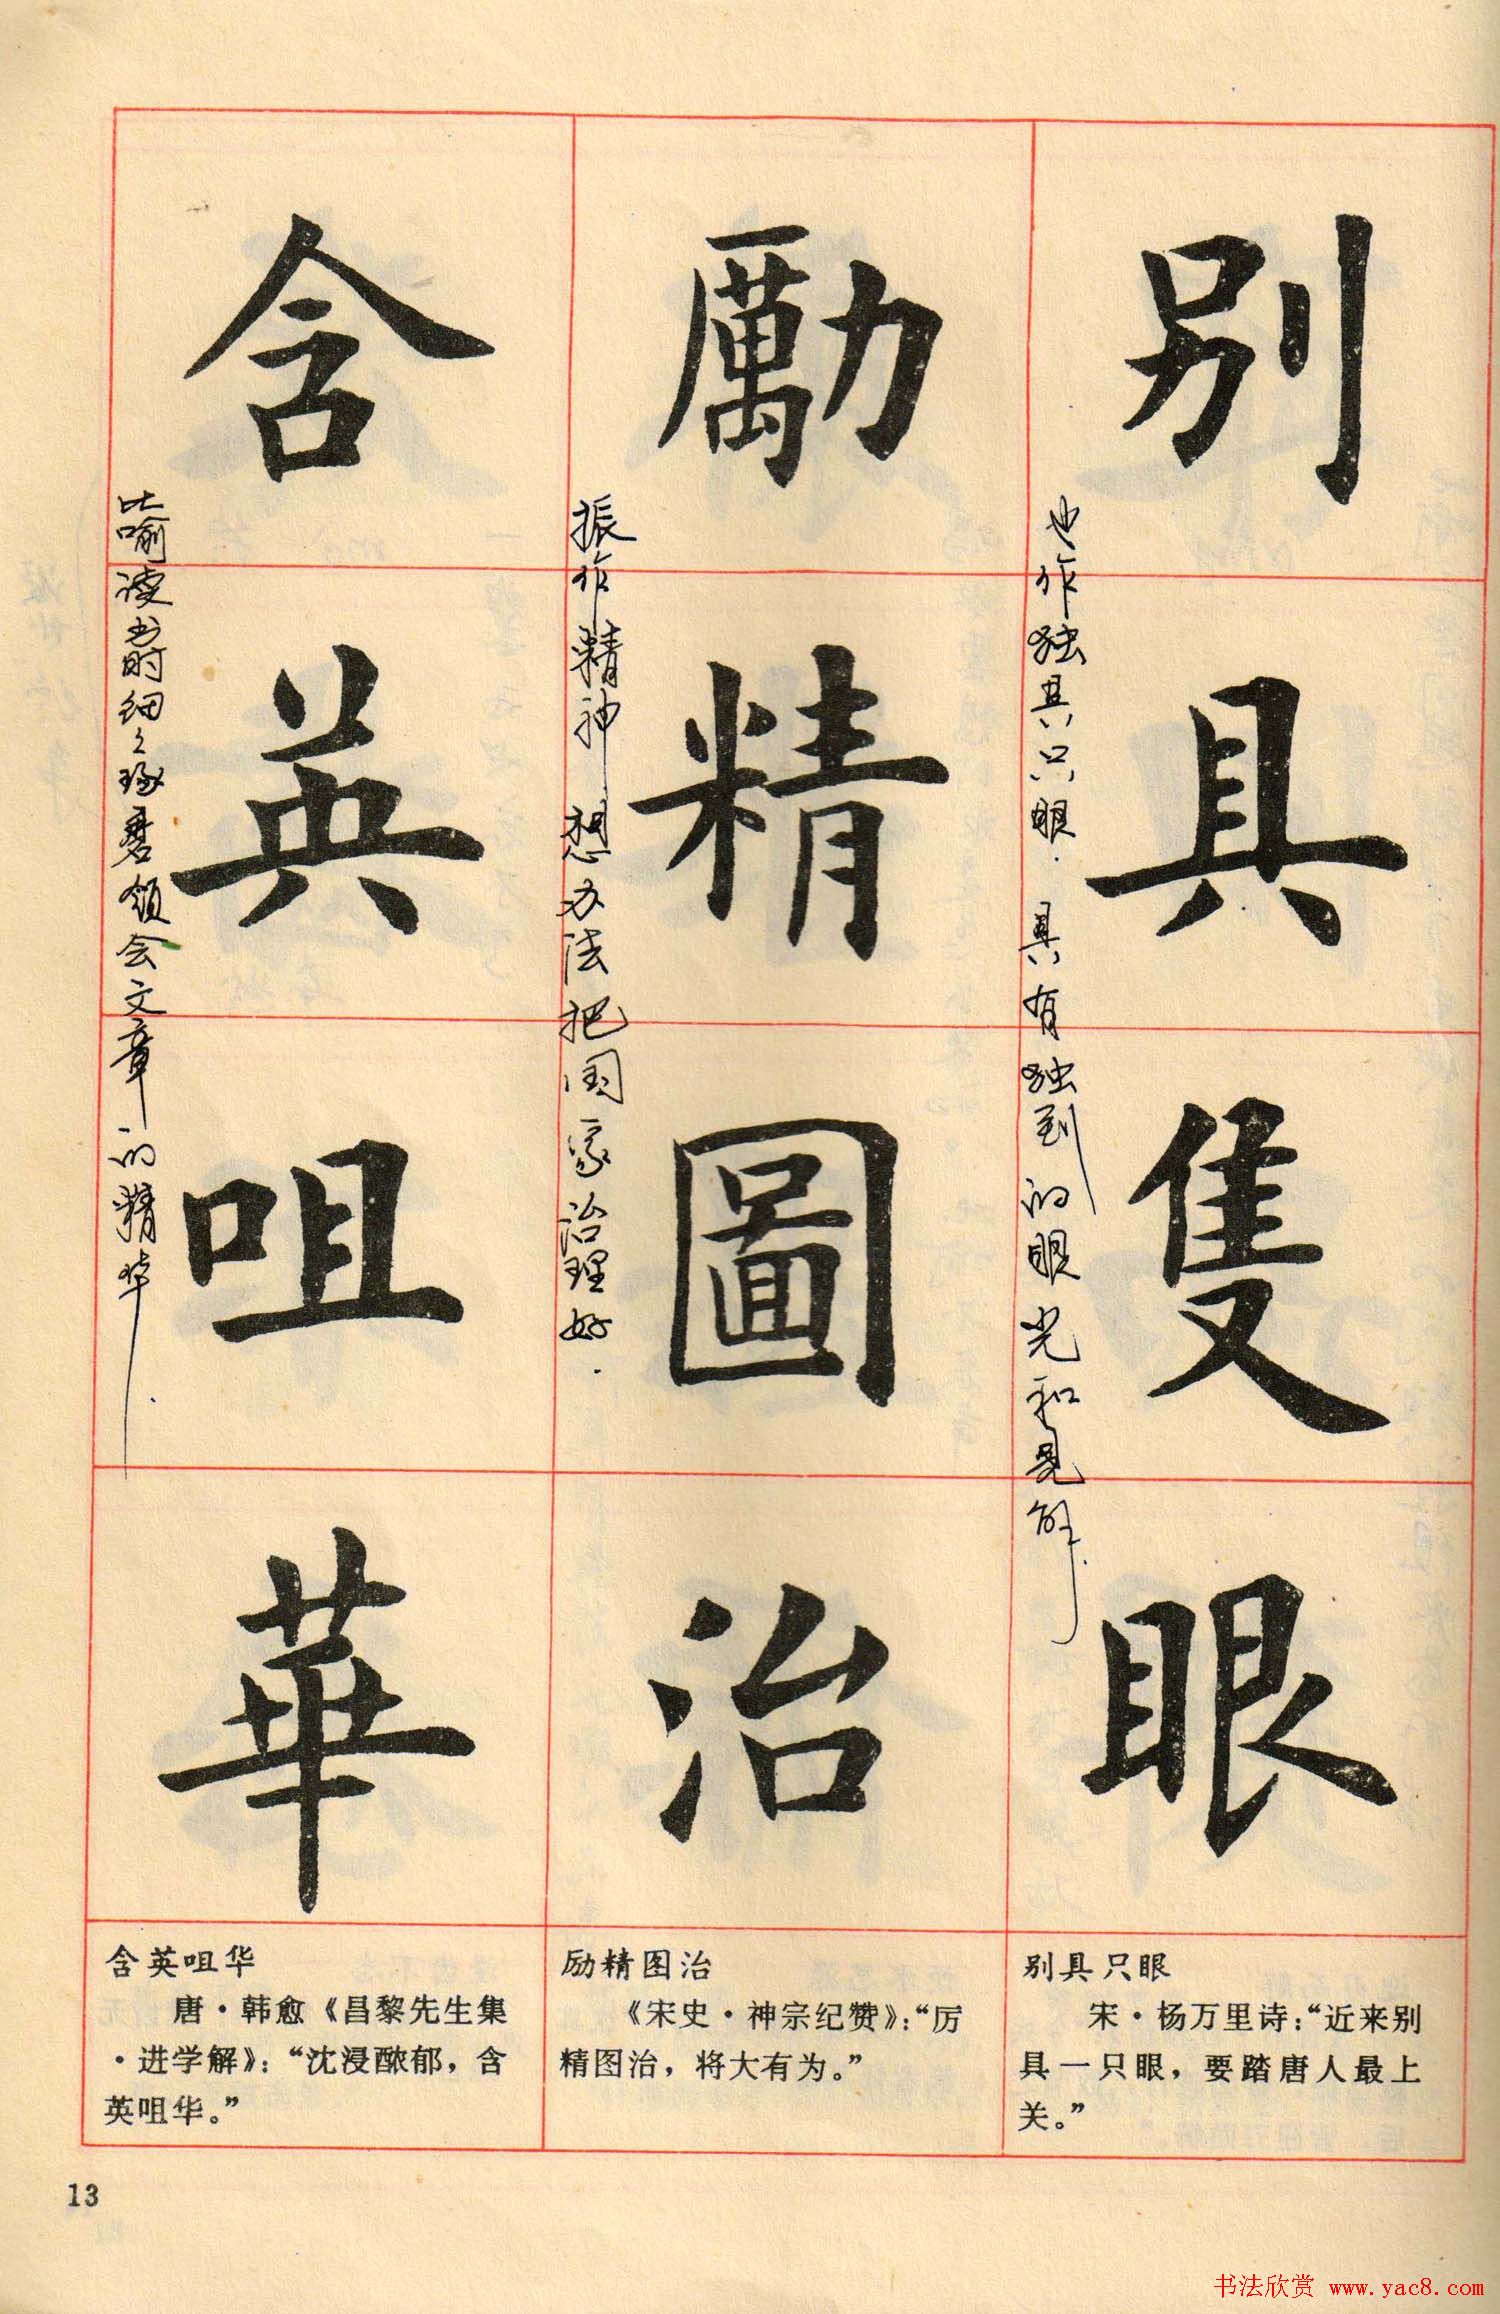 别具隻眼
也作独具只眼.具有独到的眼光和见解.
勵精圖治
振作精神 想办法把国家治理好.
含英咀華
比喻读书时细々琢磨领会文章的精华.
别具只眼
宋·杨万里诗：“近来别
具一只眼，要踏唐人最上
关。”
励精图治
《宋史·神宗纪赞》：“厉
精图治，将大有为。”
含英咀华
唐·韩愈《昌黎先生集
·进学解》：“沈浸醲郁，含
英咀华。”
13
书法欣赏 www.yac8.com